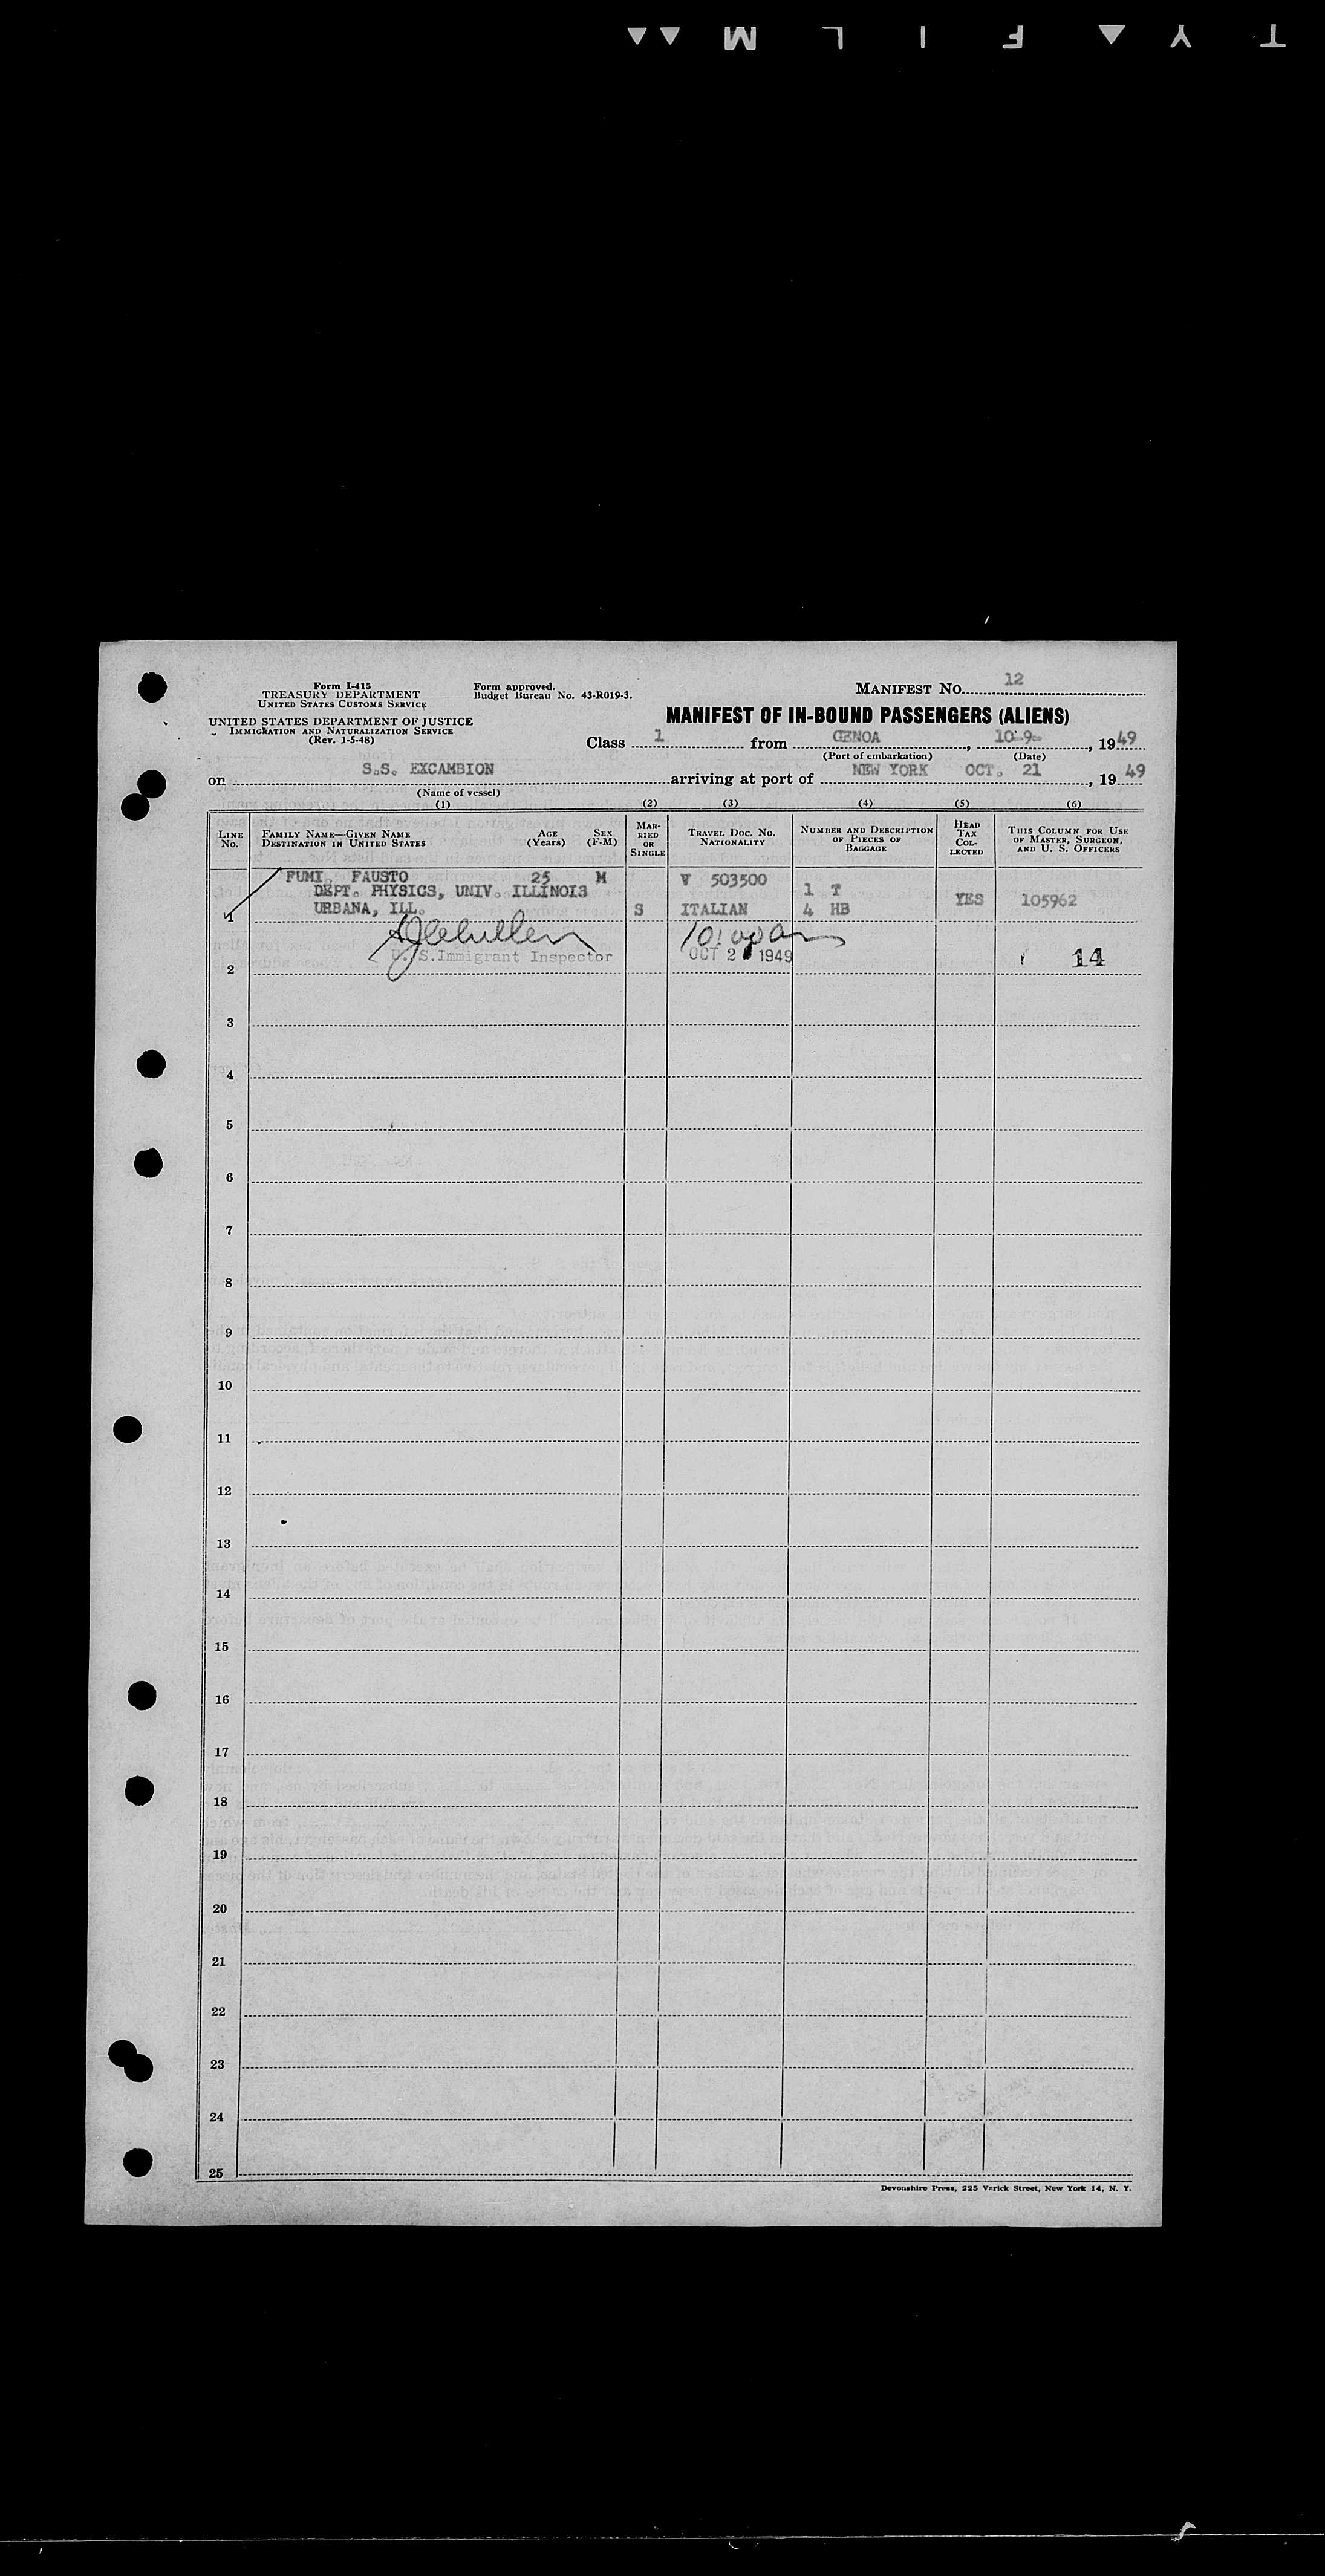 T Y ▲ F I L M ▲▲
Form I-415
TREASURY DEPARTMENT
UNITED STATES CUSTOMS SERVICE
UNITED STATES DEPARTMENT OF JUSTICE
IMMIGRATION AND NATURALIZATION SERVICE
(Rev. 1-5-48)
Form approved.
Budget Bureau No. 43-R019-3.
MANIFEST NO. 12
MANIFEST OF IN-BOUND PASSENGERS (ALIENS)
Class 1 from GENOA, 10-9-, 1949
(Port of embarkation) (Date)
on S.S. EXCAMBION arriving at port of NEW YORK OCT. 21, 1949
(Name of vessel)
(1) (2) (3) (4) (5) (6)
LINE NO. FAMILY NAME—GIVEN NAME DESTINATION IN UNITED STATES AGE (YEARS) SEX (F-M) MARRIED OR SINGLE TRAVEL DOC. NO. NATIONALITY NUMBER AND DESCRIPTION OF PIECES OF BAGGAGE HEAD TAX COLLECTED THIS COLUMN FOR USE OF MASTER, SURGEON, AND U. S. OFFICERS
FUMI, FAUSTO 25 M V 503500
DEPT. PHYSICS, UNIV. ILLINOIS 1 T YES 105962
1 URBANA, ILL. S ITALIAN 4 HB
U. S. Immigrant Inspector OCT 2 1949 14
2
3
4
5
6
7
8
9
10
11
12
13
14
15
16
17
18
19
20
21
22
23
24
25
Devonshire Press, 225 Varick Street, New York 14, N. Y.